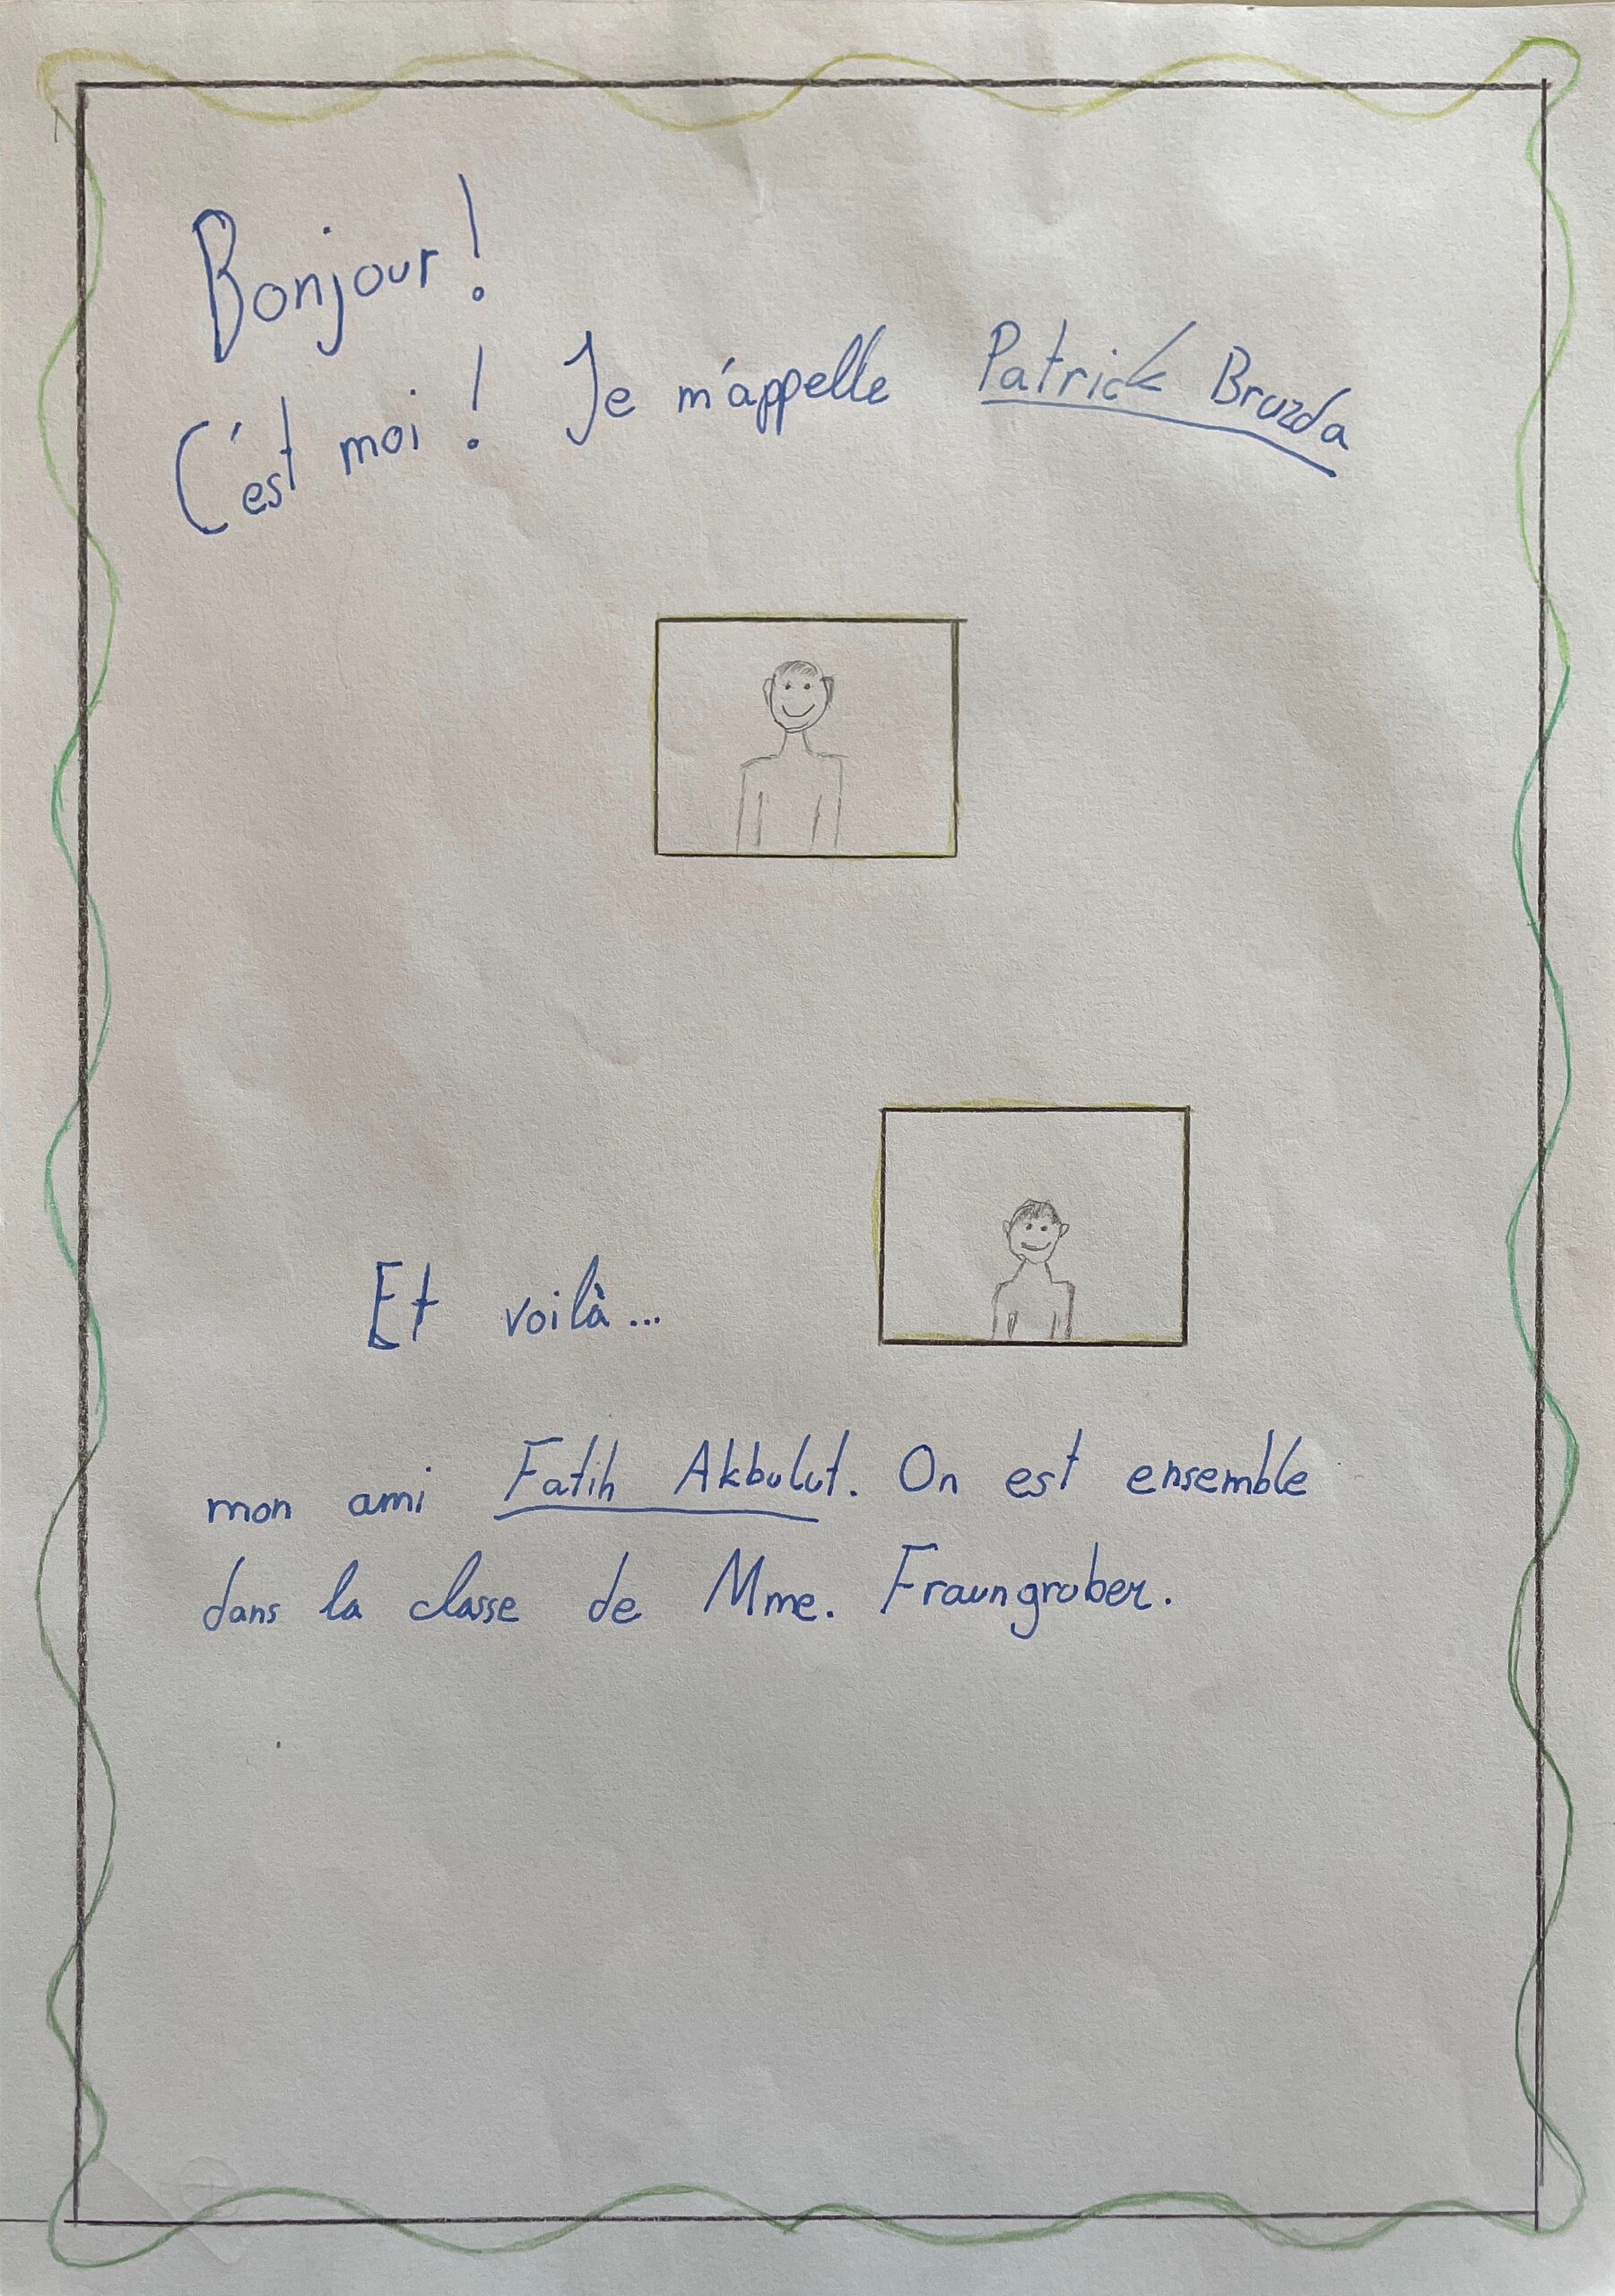 Bonjour!
C'est moi! Je m'appelle Patrick Bruzda
Et voilà...
mon ami Fatih Akbulut. On est ensemble
dans la classe de Mme. Fraungruber.